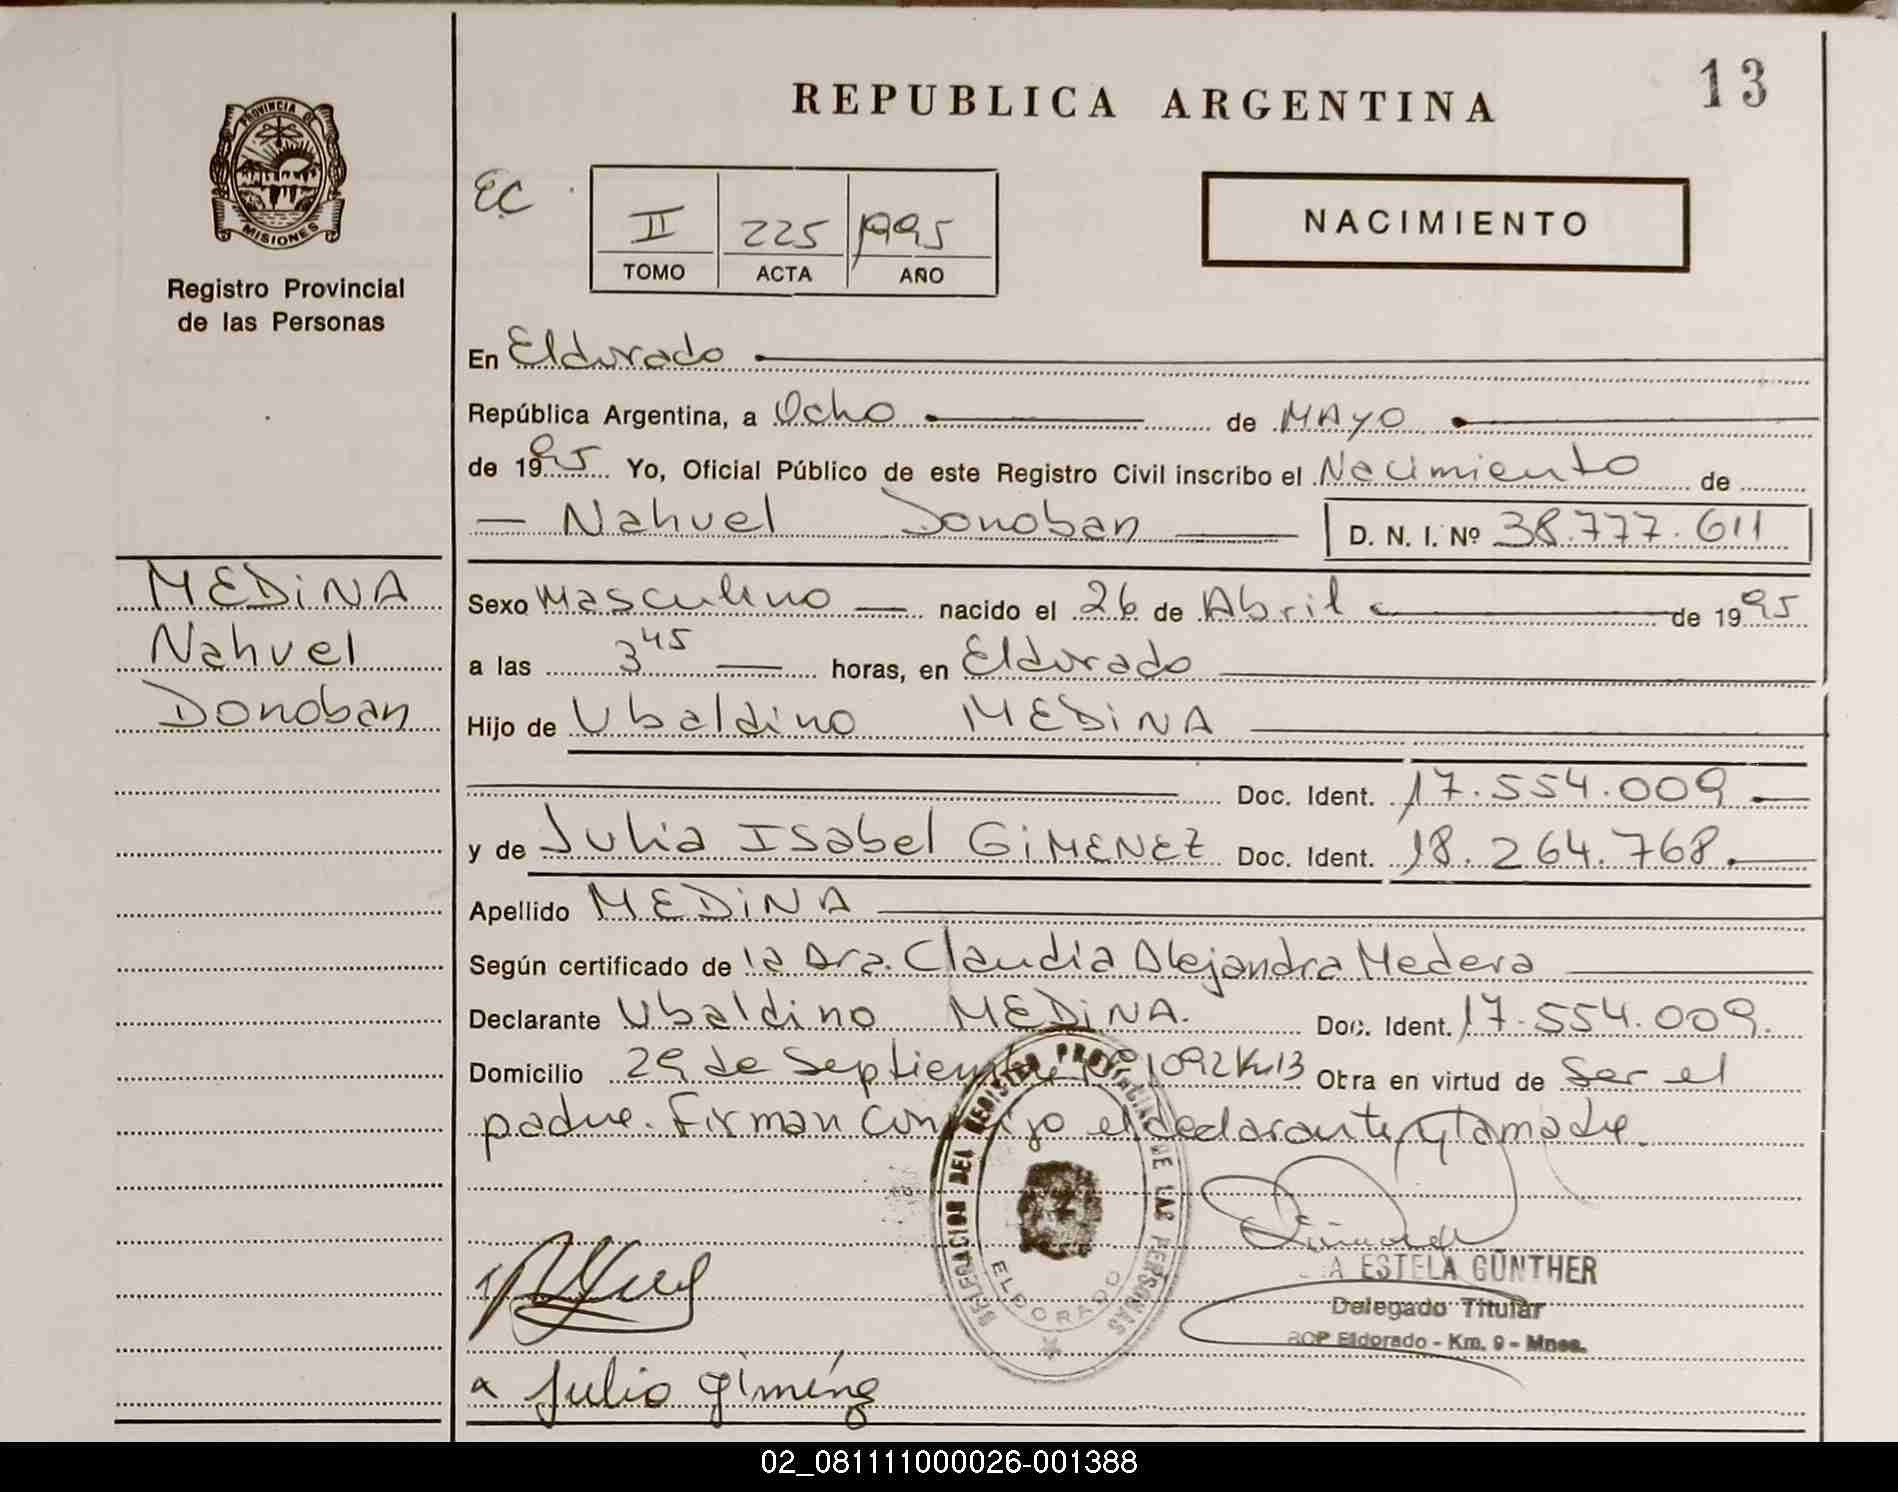 13
REPUBLICA ARGENTINA
PROVINCIA DE
MISIONES
Registro Provincial
de las Personas
EC
II 225 1995
TOMO ACTA AÑO
NACIMIENTO
En Eldorado
República Argentina, a Ocho de MAYO
de 1995 Yo, Oficial Público de este Registro Civil inscribo el Nacimiento de
Nahuel Donoban D. N. I. Nº 38.777.611
MEDINA
Nahuel
Donoban
Sexo Masculino nacido el 26 de Abril de 1995
a las 3 45 horas, en Eldorado
Hijo de Ubaldino MEDINA
Doc. Ident. 17.554.009
y de Julia Isabel GIMENEZ Doc. Ident. 18.264.768.
Apellido MEDINA
Según certificado de la Dra. Claudia Alejandra Medera
Declarante Ubaldino MEDINA. Doc. Ident. 17.554.009.
Domicilio 29 de Septiembre 1092 Km13 Otra en virtud de Ser el
padre. Firman conmigo el declarante y la madre.
DELEGACION DEL REGISTRO PROVINCIAL DE LAS PERSONAS
ELDORADO
ESTELA GÜNTHER
Delegado Titular
RCP Eldorado - Km. 9 - Mnes.
Julia Giménez
02_081111000026-001388